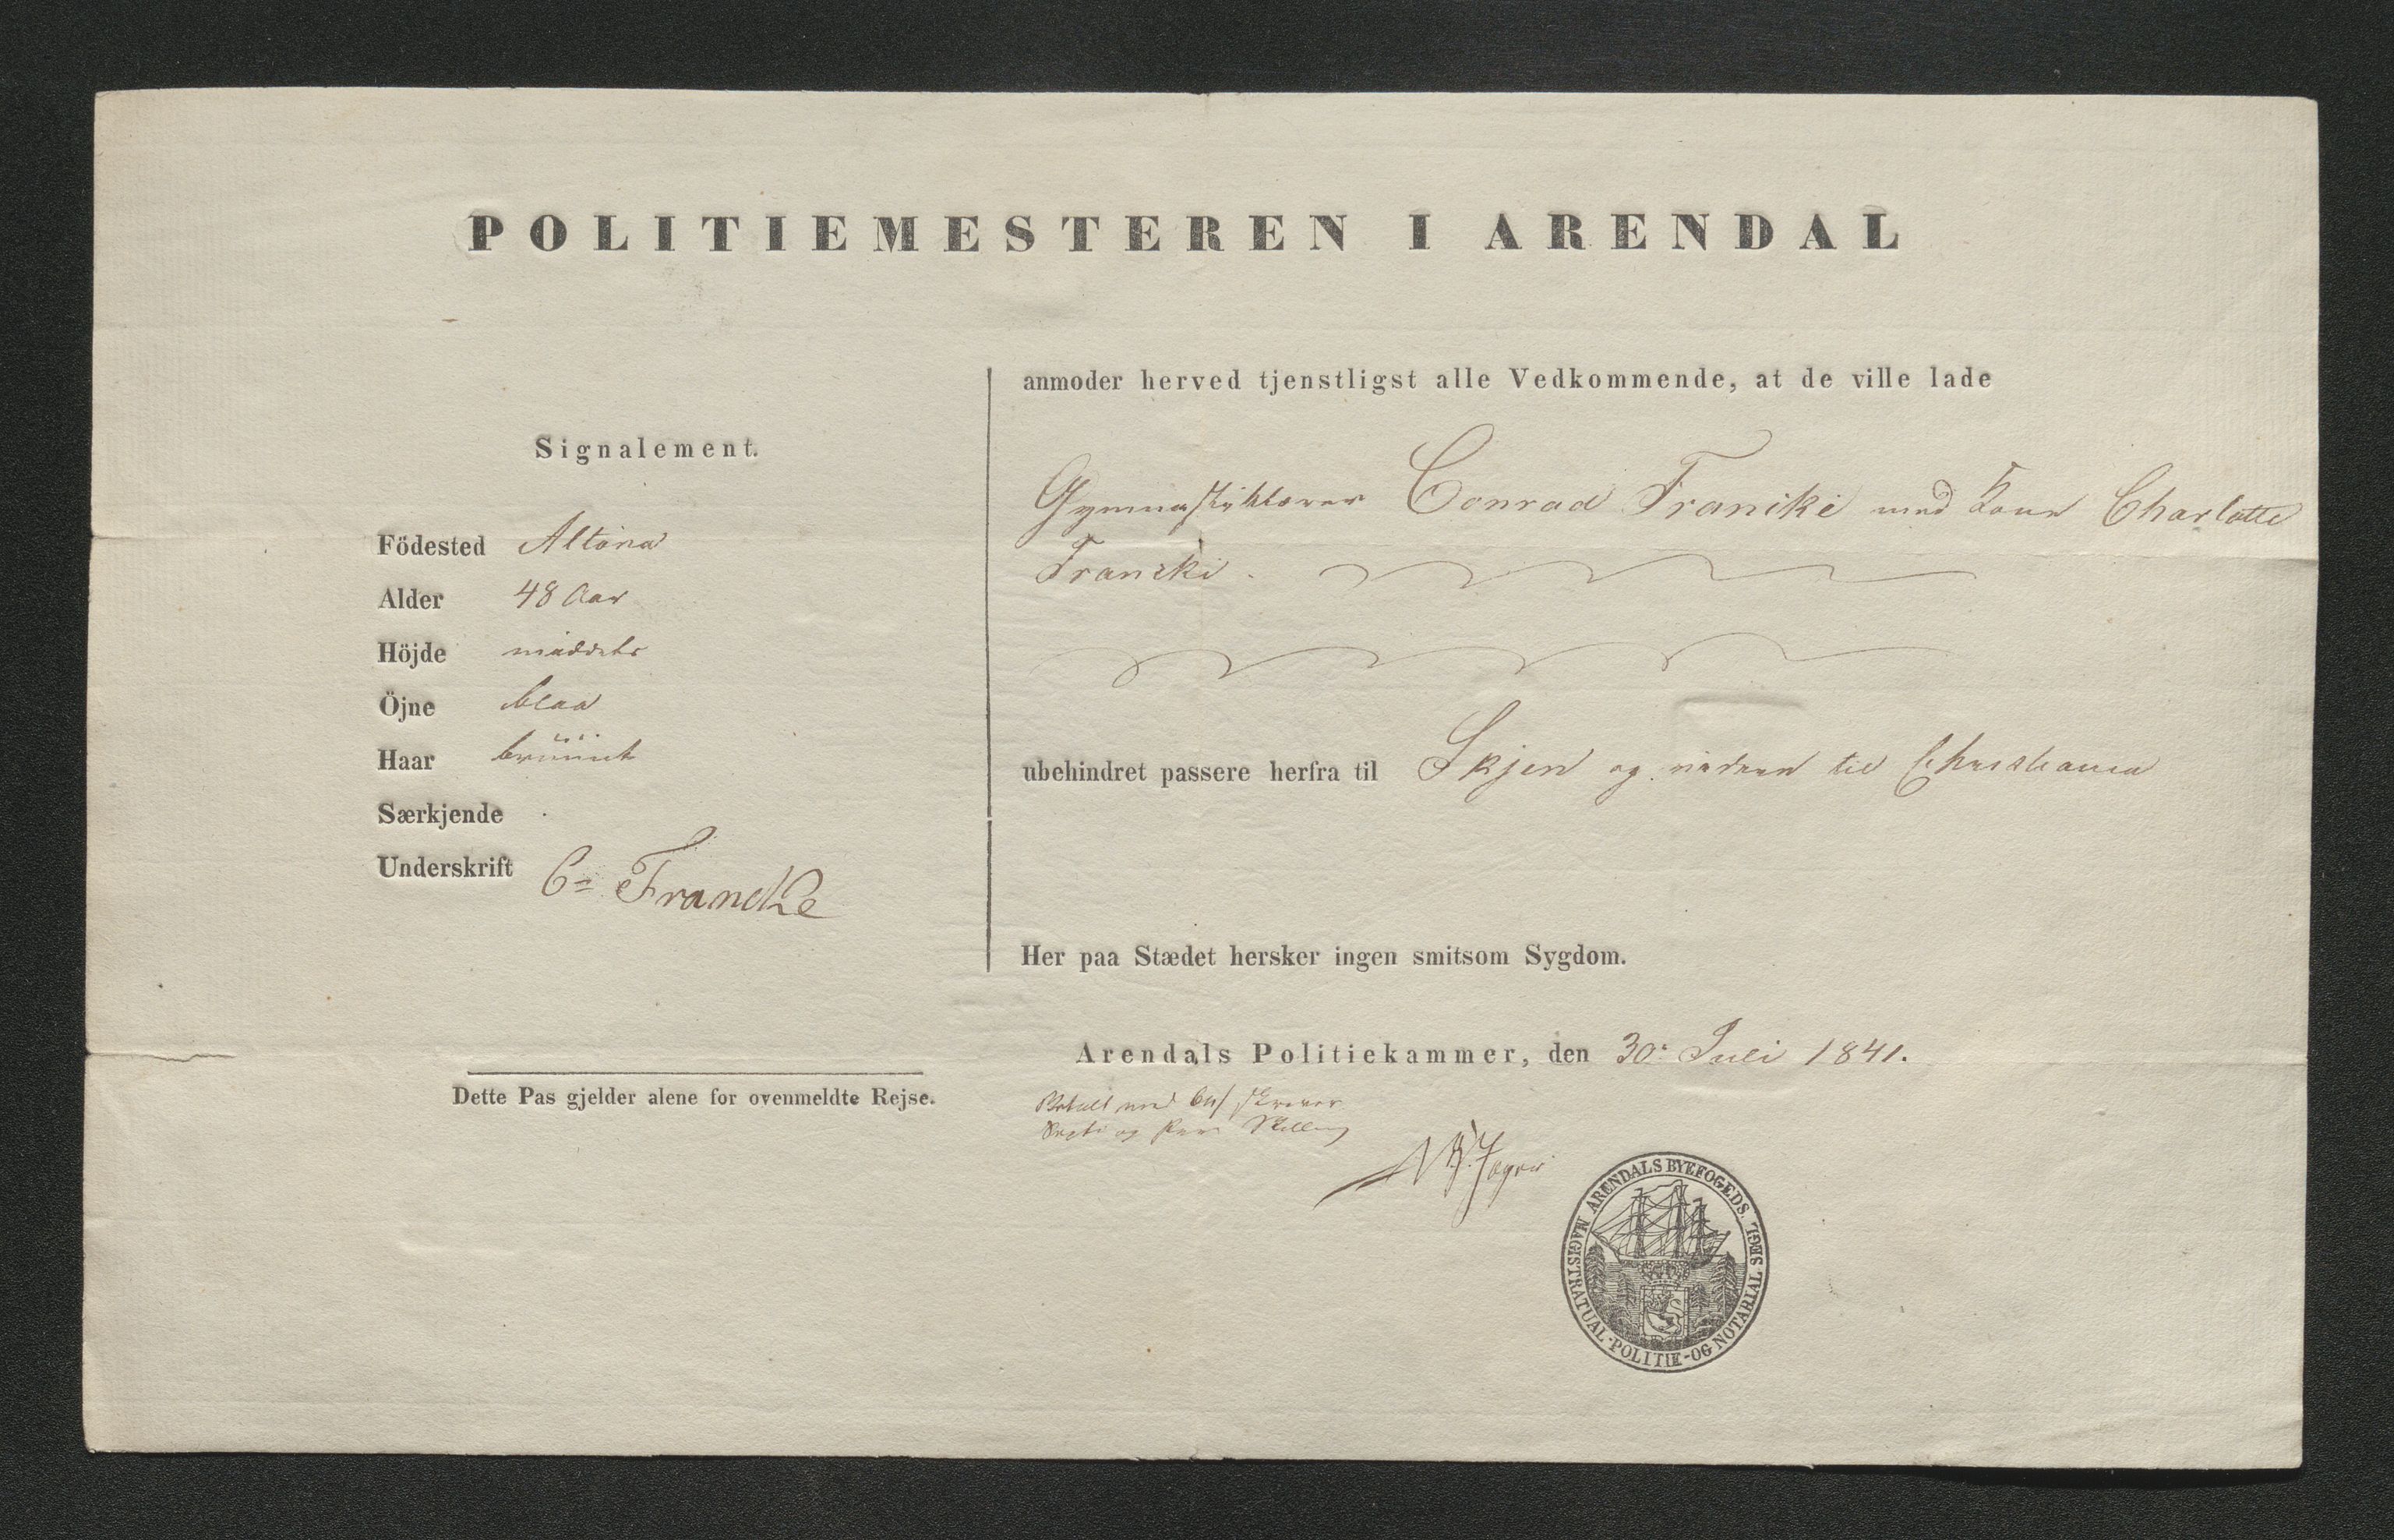 POLITIEMESTEREN I ARENDAL
Signalement.
Födested Altona
Alder 48 Aar
Höjde middels
Öjne blaa
Haar bruunt
Særkjende
Underskrift C= Francke
Dette Pas gjelder alene for ovenmeldte Rejse.
anmoder herved tjenstligst alle Vedkommende, at de ville lade
Gymnastiklærer Conrad Francke med Kone Charlotte
Francke.
ubehindret passere herfra til Skjen og videre til Christiania
Her paa Stædet hersker ingen smitsom Sygdom.
Arendals Politiekammer, den 30. Juli 1841.
Betalt med
og Skilling
ARENDALS BYEFOGEDS. MAGISTRATUAL-POLITIE-OG NOTARIAL SEGL